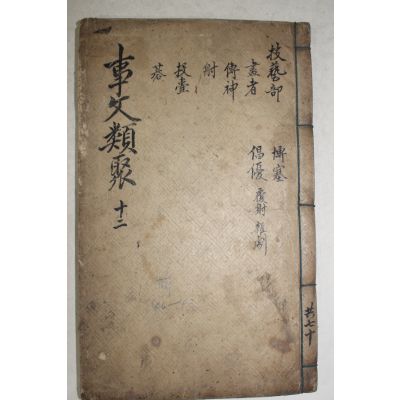 技藝部
畫者
傳神
射
投壺
碁
博塞
倡優 覆射 雜劇
事文類聚 十二
共七十